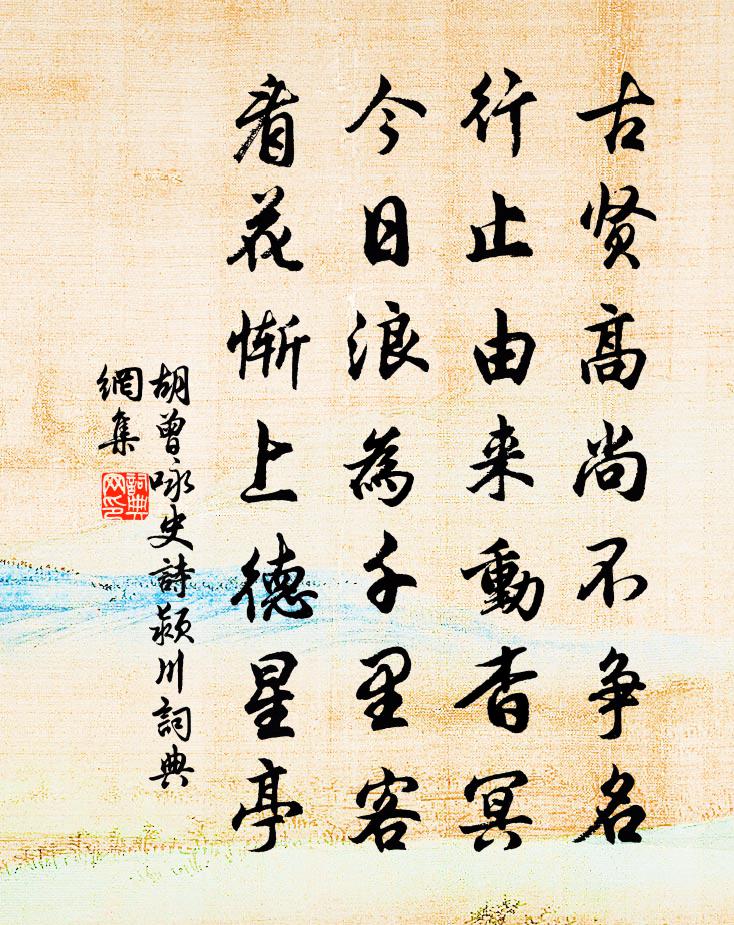 古贤高尚不争名
行止由来動杳冥
今日浪為千里客
看花惭上德星亭
胡曾咏史詩颍川詞典
網集
詞典
网印